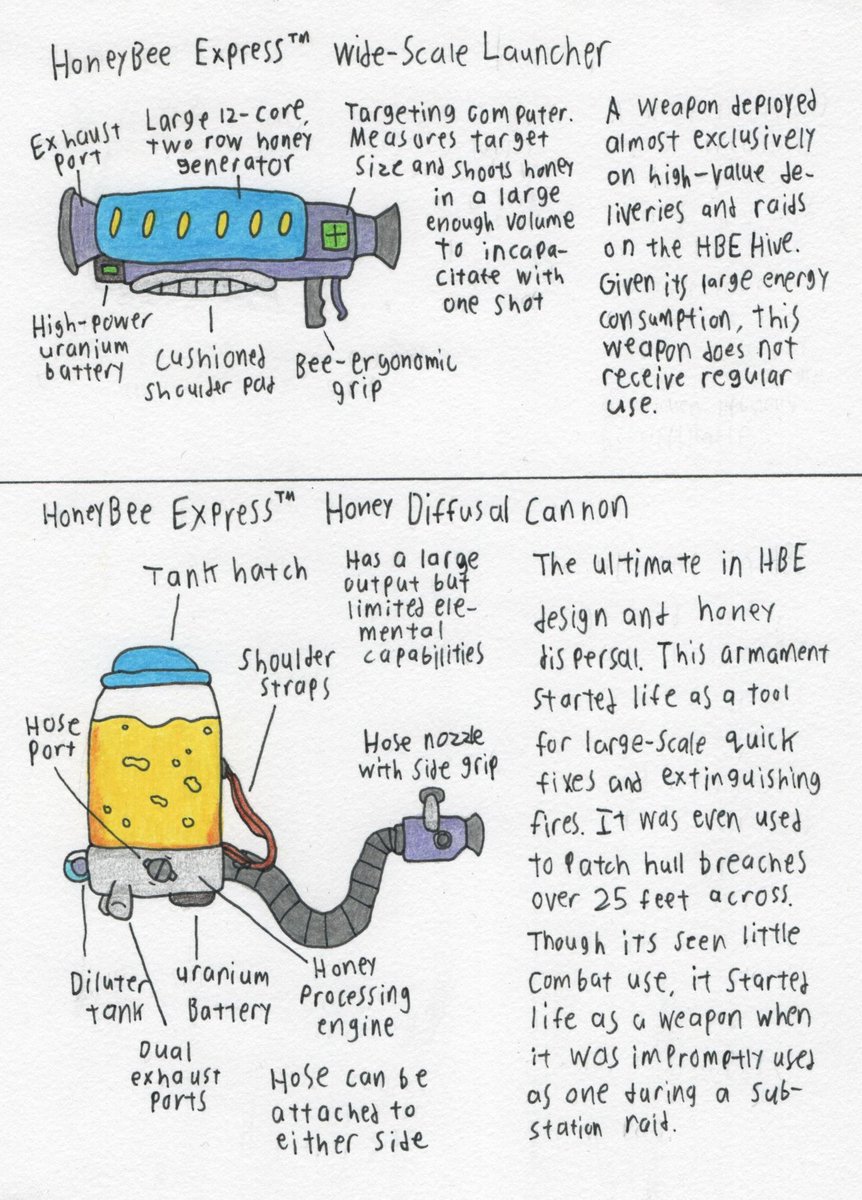 HoneyBee Express™ Wide-Scale Launcher
Exhaust
Port
Large 12-core,
two row honey
generator
Targeting computer.
Measures target
size and shoots honey
in a large
enough volume
to incapa-
citate with
one shot
High-power
uranium
battery
Cushioned
shoulder pad
Bee-ergonomic
grip
A weapon deployed
almost exclusively
on high-value de-
liveries and raids
on the HBE Hive.
Given its large energy
consumption, this
weapon does not
receive regular
use.
HoneyBee Express™ Honey Diffusal Cannon
Tank hatch
Has a large
output but
limited ele-
mental
capabilities
Shoulder
straps
Hose
port
Hose nozzle
with side grip
Diluter
tank
uranium
Battery
Honey
Processing
engine
Dual
exhaust
ports
Hose can be
attached to
either side
The ultimate in HBE
design and honey
dispersal. This armament
started life as a tool
for large-scale quick
fixes and extinguishing
fires. It was even used
to patch hull breaches
over 25 feet across.
Though its seen little
combat use, it started
life as a weapon when
it was impromptly used
as one during a sub-
station raid.